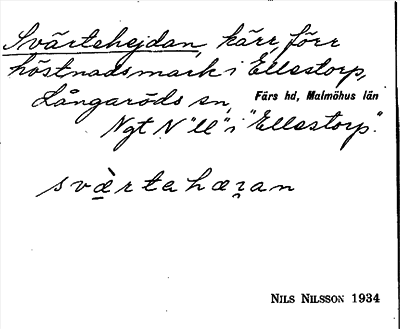 Svärtehejdan, kärr, förr
höstnadsmark i Ellestorp,
Långaröds sn, Färs hd, Malmöhus län
Ngt N "ll" i "Ellestorp".
svæ̀rtahæɪ̯an
NILS NILSSON 1934